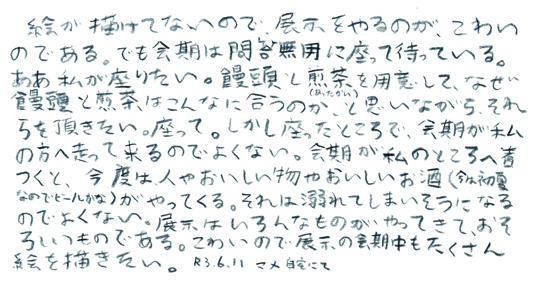 絵が描けてないので、展示をやるのが、こわい
のである。でも会期は問答無用に座って待っている。
ああ私が座りたい。饅頭と煎茶を用意して、なぜ
饅頭と煎茶(あったかい)はこんなに合うのか、と思いながら、それ
らを頂きたい。座って。しかし座ったところで、会期が私
の方へ走って来るのでよくない。会期が私のところへ着
つくと、今度は、人やおいしい物やおいしいお酒(今は初夏
なのでビールかな)がやってくる。それは溺れてしまいそうになる
のでよくない。展示はいろんなものがやってきて、おそ
ろしいものである。こわいので展示の会期中もたくさん
絵を描きたい。 R3.6.11 マメ自宅にて